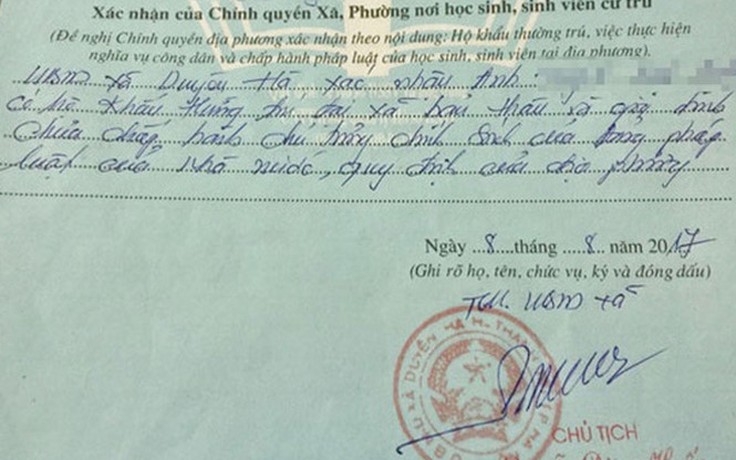 Xác nhận của Chính quyền Xã, Phường nơi học sinh, sinh viên cư trú
(Đề nghị Chính quyền địa phương xác nhận theo nội dung: Hộ khẩu thường trú, việc thực hiện
nghĩa vụ công dân và chấp hành pháp luật của học sinh, sinh viên tại địa phương).
UBND xã Duyên Hà xác nhận Anh:
có hộ khẩu thường trú tại xã bản thân và gia đình
chưa chấp hành chủ trương chính sách của Đảng pháp
luật của Nhà nước, quy định của địa phương
Ngày 8 tháng 8 năm 2017
(Ghi rõ họ, tên, chức vụ, ký và đóng dấu)
TM. UBND xã
XÃ DUYÊN HÀ H. THANH
CHỦ TỊCH